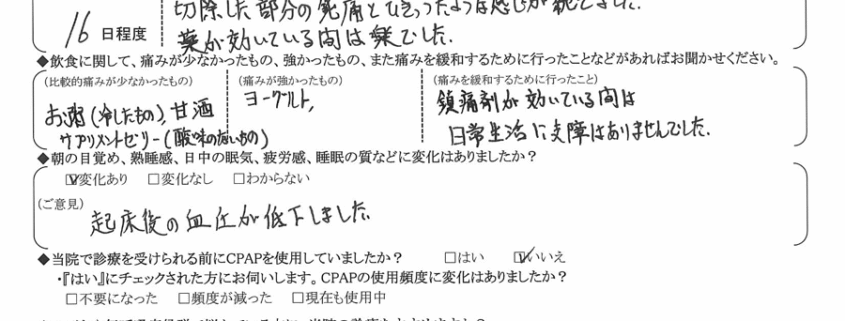 切除した部分の鈍痛とひきつったような感じが続きました。
16 日程度
薬が効いている間は楽でした。
◆飲食に関して、痛みが少なかったもの、強かったもの、また痛みを緩和するために行ったことなどがあればお聞かせください。
(比較的痛みが少なかったもの) (痛みが強かったもの) (痛みを緩和するために行ったこと)
お粥(冷したもの)、甘酒 ヨーグルト, 鎮痛剤が効いている間は
サプリメントゼリー(酸味のないもの) 日常生活に支障はありませんでした.
◆朝の目覚め、熟睡感、日中の眠気、疲労感、睡眠の質などに変化はありましたか?
☑変化あり □変化なし □わからない
(ご意見)
起床後の血圧が低下しました
◆当院で診療を受けられる前にCPAPを使用していましたか? □はい ☑いいえ
・『はい』にチェックされた方にお伺いします。CPAPの使用頻度に変化はありましたか?
□不要になった □頻度が減った □現在も使用中